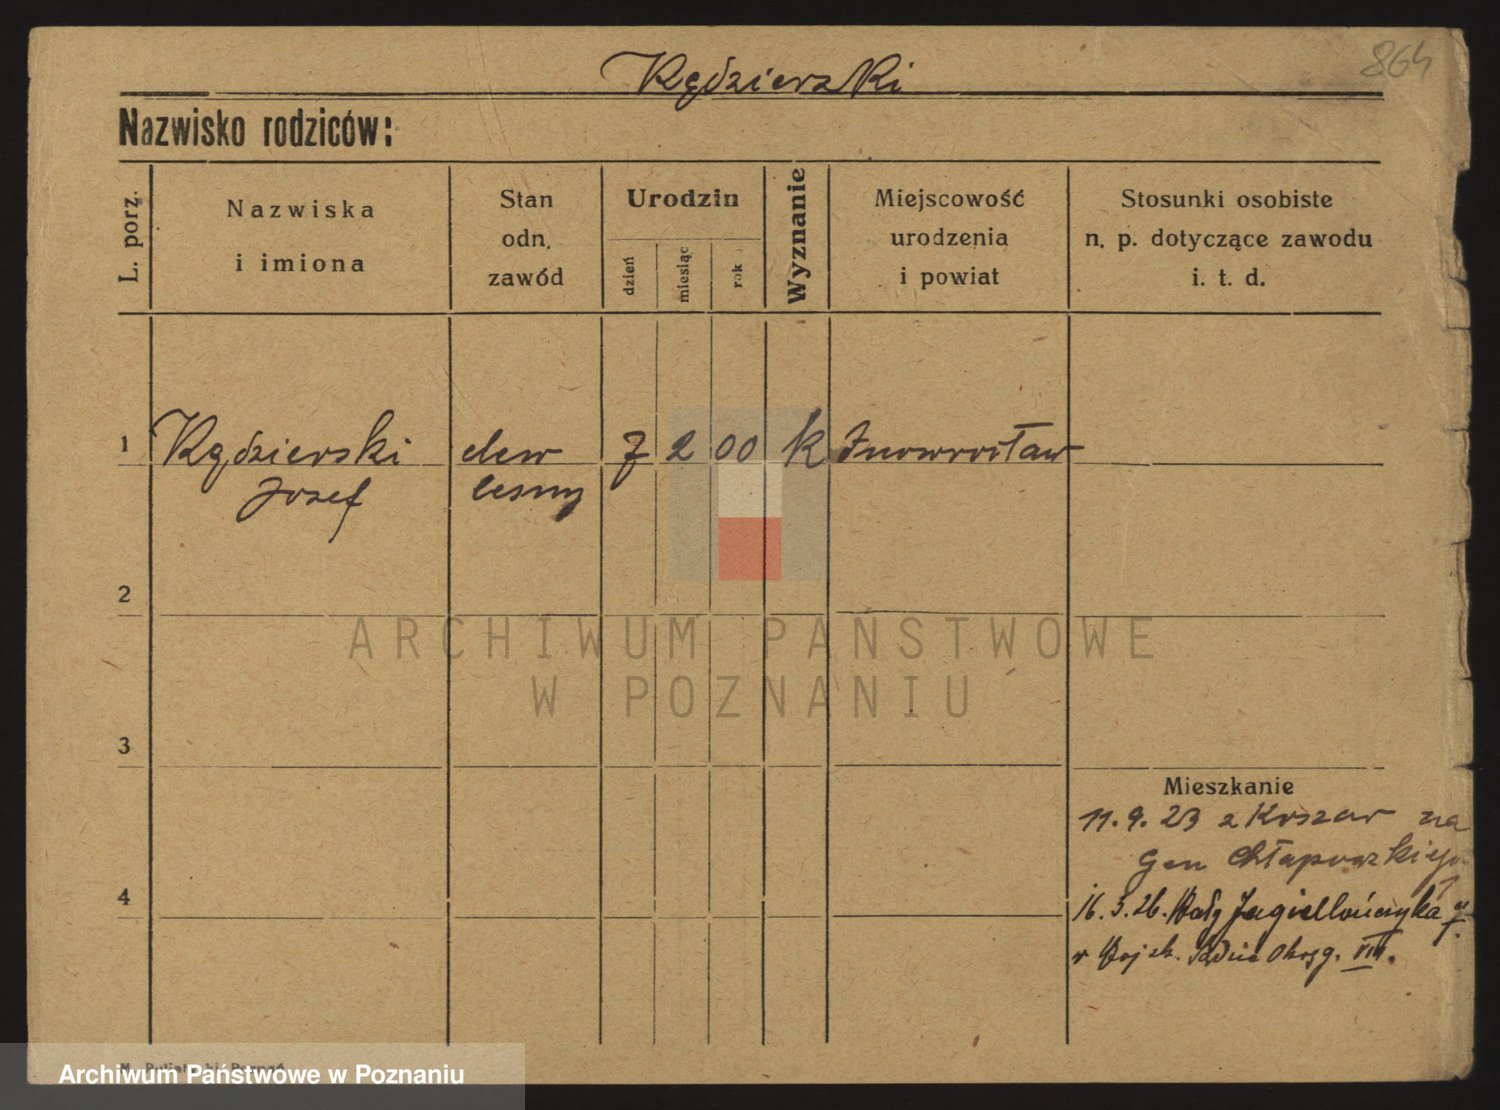 864
Kędzierski
Nazwisko rodziców:
L. porz.
Nazwiska
i imiona
Stan
odn.
zawód
Urodzin
dzień
miesiąc
rok
Wyznanie
Miejscowość
urodzenia
i powiat
Stosunki osobiste
n. p. dotyczące zawodu
i. t. d.
1 Kędzierski elew 7 2 00 k Inowrocław
Jozef leśny
2
ARCHIWUM PAŃSTWOWE
W POZNANIU
3
Mieszkanie
11. 9. 23 z Koszar na
Gen Chłapowskiego
4
16. 3. 26. Wały Jagiellończyka
w Wojsk. Sądzie Okręg. VII.
Archiwum Państwowe w Poznaniu